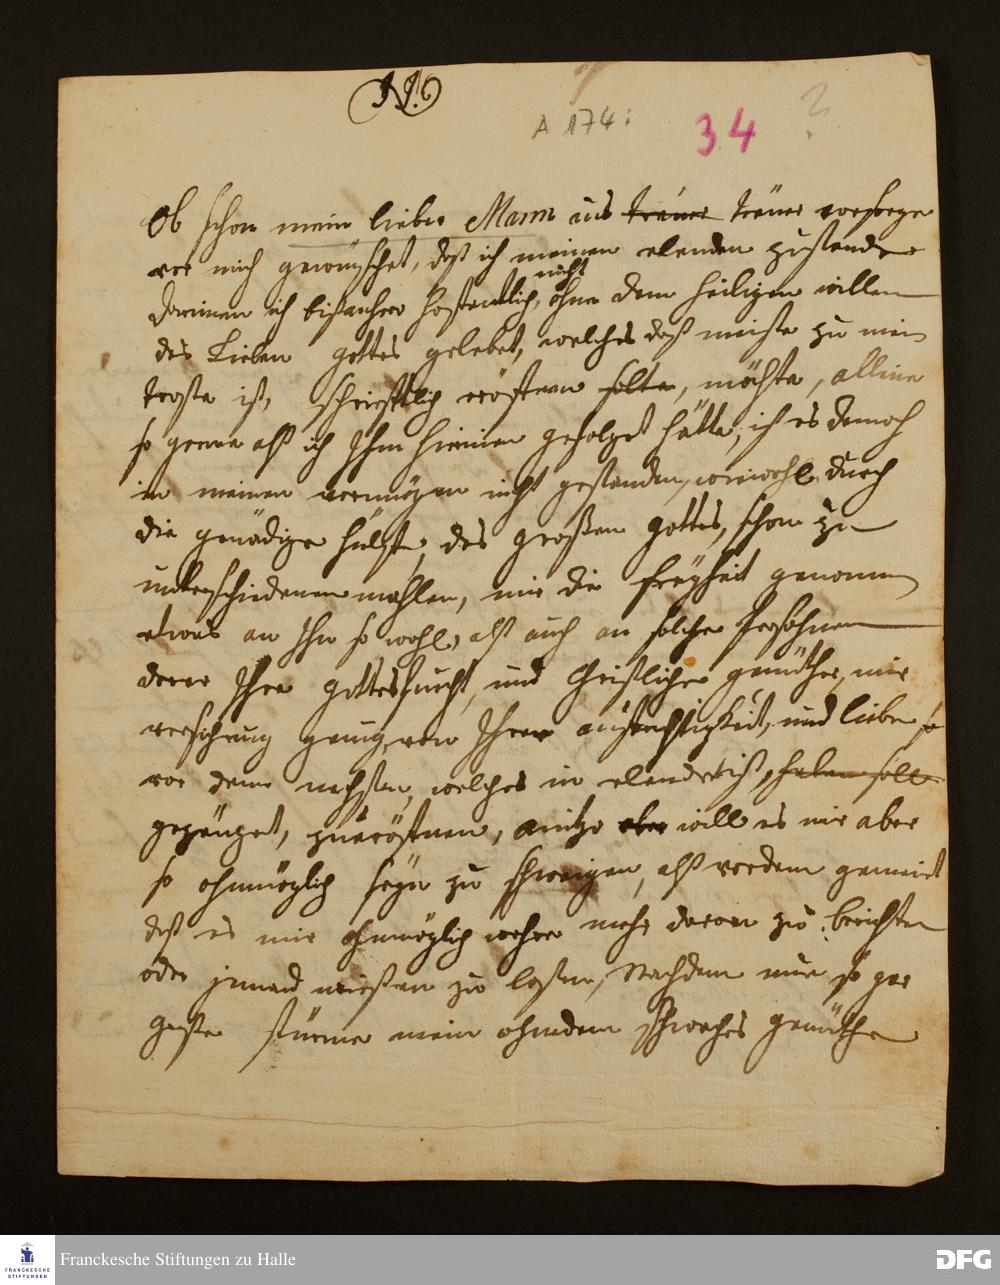 N. 6
A 174:
34
?
Ob schon mein lieber Mann aus treuer treuer vorsorge
vor mich gewünschet, daß ich meinen elenden zustande
darinnen ich bißanhero hoffentlich, nicht ohne dem heiligen willen
des Lieben gottes gelebet, welches daß meiste zu mein
troste ist, schrifftlich eröffnen solte, möchte, alleine
so gerne alß ich Ihm hierinnen gefolget hätte, ist es dennoch
in meinen vermögen nicht gestanden, wiewohl durch
die genädige hülffe, des großen gottes, schon zu
unterschiedenen mahlen, mir die freyheit genommen
etwas an Ihn so wohl, alß auch an solche Persohnen
derer Ihre gottesfurcht, und Christliches gemüthe, mir
versichrung genug, von Ihrer aufrichtigkeit, und liebe so
vor dem nechsten, welches in elend ist, haben soll
gezeuget, zu eröffnen, anitzo aber will es mir aber
so ohnmöglich seyn zu schweigen, alß vordem gemeint
daß es mir ohnmöglich wehre mehr davon zu berichten
oder jemand wißen zu laßen, Nachdem nun so gar
große stürme mein ohndem schwaches gemüthe
Franckesche Stiftungen zu Halle
FRANCKESCHE
STIFTUNGEN
DFG